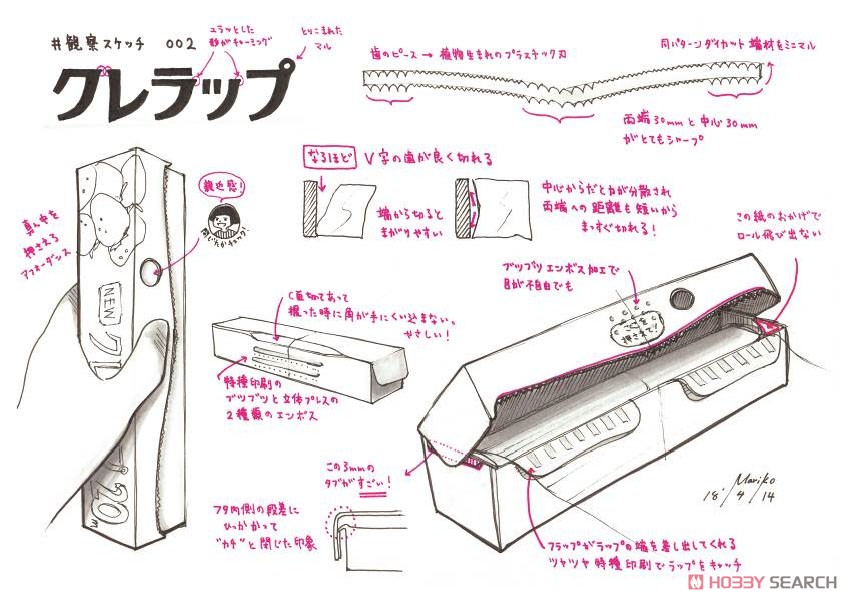 #観察スケッチ 002
クレラップ
ユラッとした
形がチャーミング
とりこまれた
マル
歯のピース → 植物生まれのプラスチック刃
同パターンダイカット 端材をミニマル
両端30mmと中心30mm
がとてもシャープ
なるほど V字の歯が良く切れる
端から切ると
まがりやすい
中心からだと力が分散され
両端への距離も短いから
まっすぐ切れる!
この紙のおかげで
ロール飛び出ない
親近感!
閉じたかチェック!
真ん中を
押さえる
アフォーダンス
NEW
20m
C面切てあって
握った時に角が手にくい込まない。
やさしい!
特種印刷の
ブツブツと立体プレスの
2種類のエンボス
ブツブツエンボス加工で
目が不自由でも
ここを
押さえて!
この3mmの
タブがすごい!
フタ内側の段差に
ひっかかって
"カチ"と閉じた印象
フラップがラップの端を差し出してくれる
ツヤツヤ特種印刷でラップをキャッチ
Mariko
18'/4/14
HOBBY SEARCH